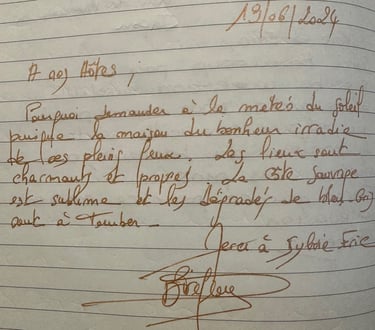 19/06/2024
A nos Hôtes,
Pourquoi demander à la météo du soleil
puisque la maison du bonheur irradie
de ses pleins feux. Les lieux sont
charmants et propres. La Côte Sauvage
est sublime et les dégradés de bleu
sont à Tomber -
Merci à Sylvie Eric